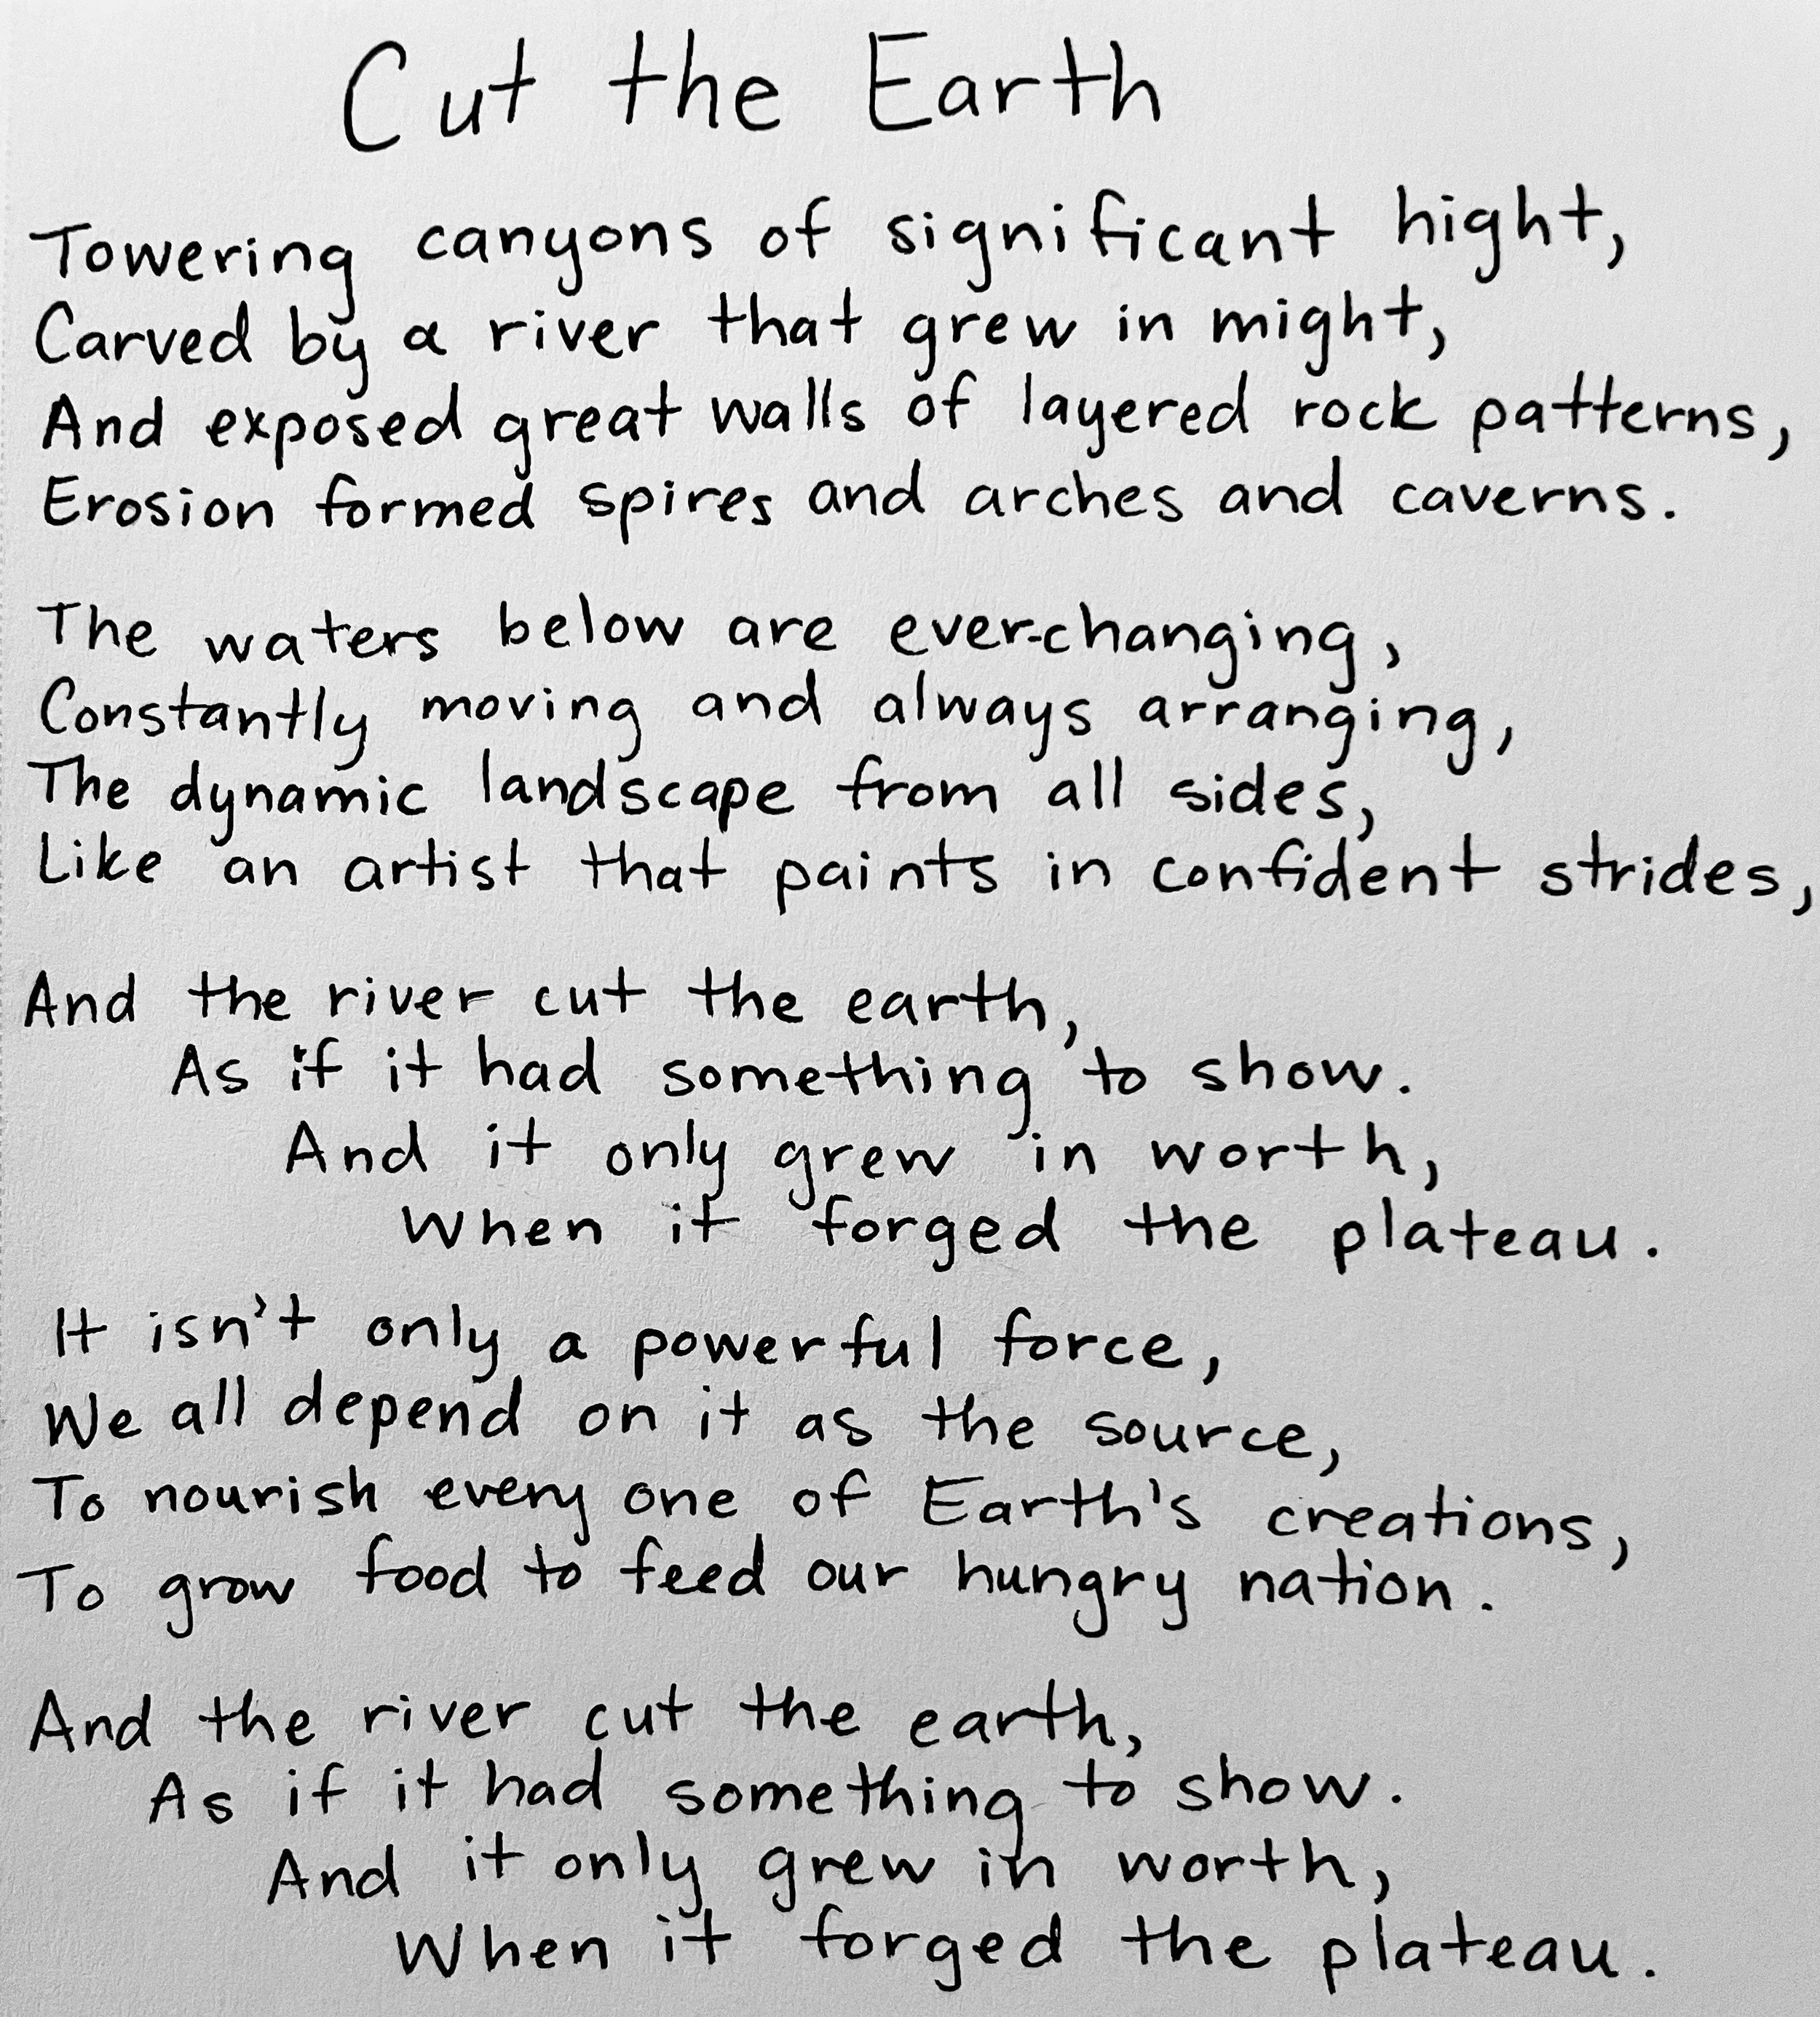 Cut the Earth
Towering canyons of significant hight,
Carved by a river that grew in might,
And exposed great walls of layered rock patterns,
Erosion formed spires and arches and caverns.
The waters below are ever-changing,
Constantly moving and always arranging,
The dynamic landscape from all sides,
Like an artist that paints in confident strides,
And the river cut the earth,
As if it had something to show.
And it only grew in worth,
When it forged the plateau.
It isn't only a powerful force,
We all depend on it as the source,
To nourish every one of Earth's creations,
To grow food to feed our hungry nation.
And the river cut the earth,
As if it had something to show.
And it only grew in worth,
When it forged the plateau.